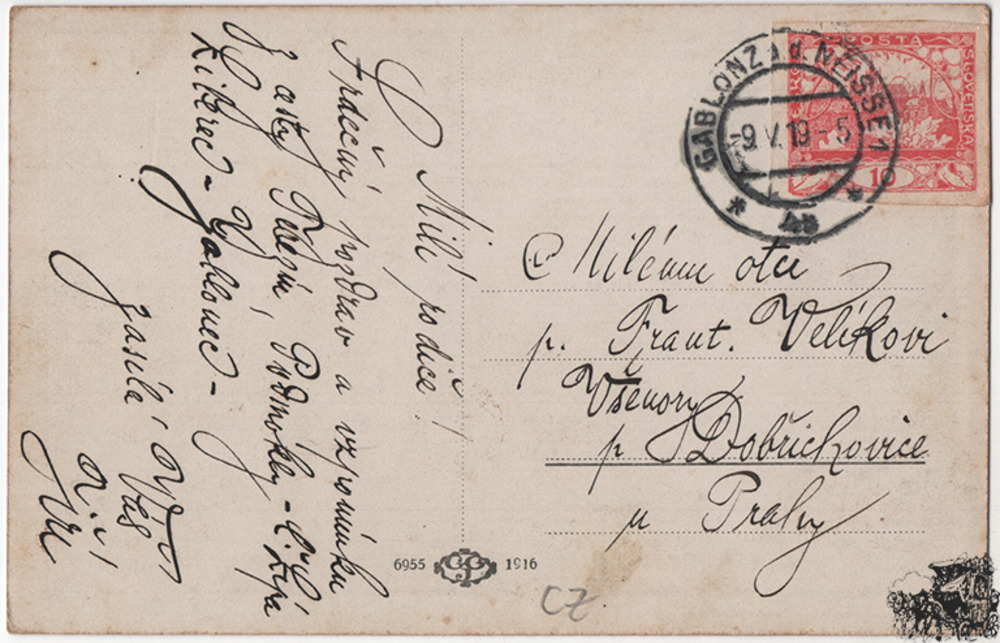 Milí rodiče!
Srdečný pozdrav a vzpomínku
z cesty Terezín, Podmokly - Č. Lípa
Liberec - Jablonec -
zasílá Váš
GABLONZ a.d. NEISSE 1
-9.V.19-5
4a
POŠTA
SLOVENSKÁ
10
Milému otci
p. Frant. Velíkovi
Všenory
p Dobřichovice
u Prahy
6955 1916
CZ